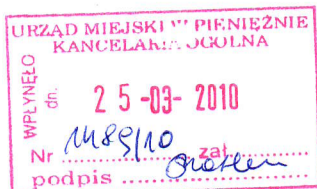 URZĄD MIEJSKI W PIENIĘŻNIE
KANCELARIA OGÓLNA
WPŁYNĘŁO
dn.
25 -03- 2010
Nr 1489/10 zał
podpis